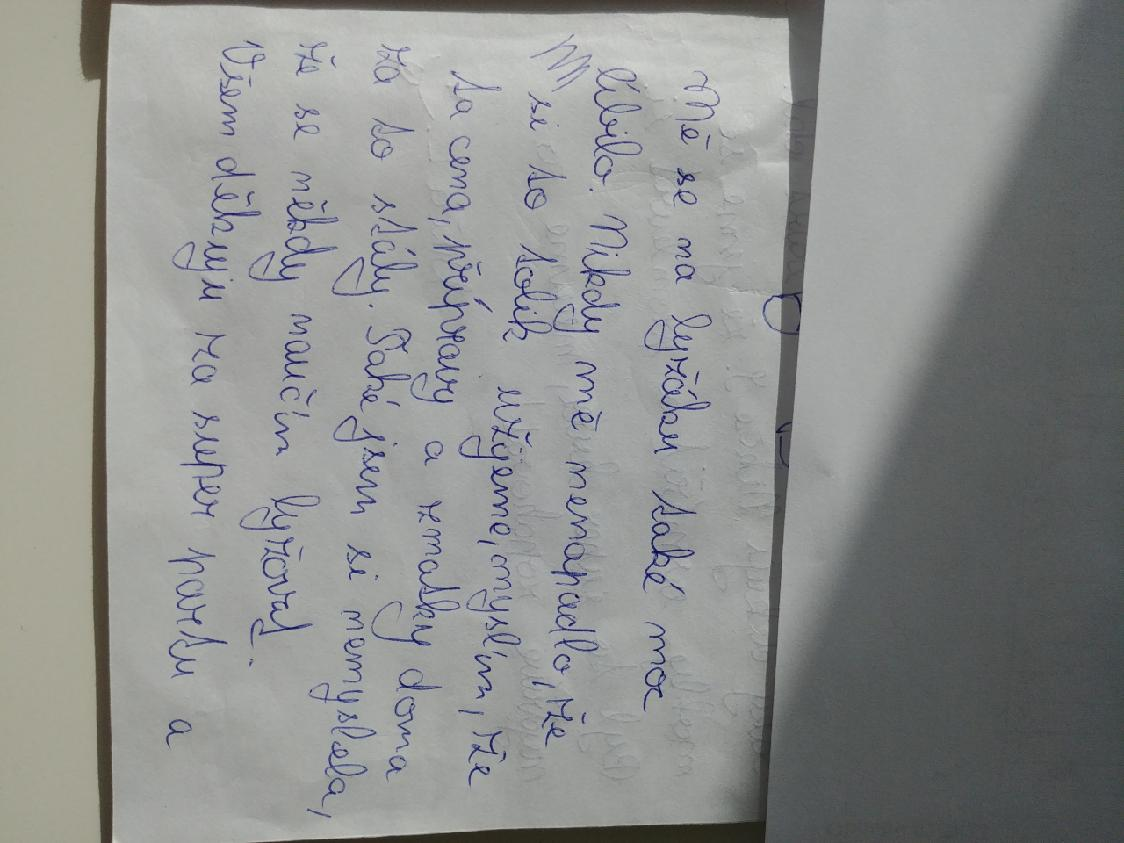 Mě se na lyžáku také moc
líbilo. Nikdy mě nenapadlo, že
si to tolik užijeme, myslím, že
ta cena, přípravy a zmatky doma
za to stály. Také jsem si nemyslela,
že se někdy naučím lyžovat.
Všem děkuju za super partu a